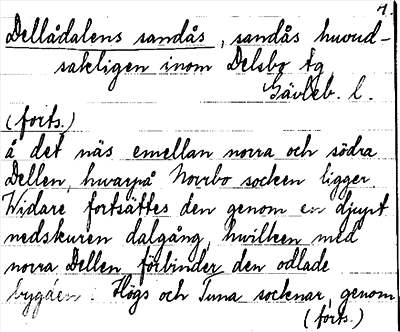 7.
Dellådalens sandås, sandås huvud-
sakligen inom Delsbo tg
Gävleb. l.
(forts.)
å det näs emellan norra och södra
Dellen, hvarpå Norrbo socken ligger
Widare fortsättes den genom en djupt
nedskuren dalgång, hvilken med
norra Dellen förbinder den odlade
bygden i Högs och Tuna socknar, genom
(forts.)